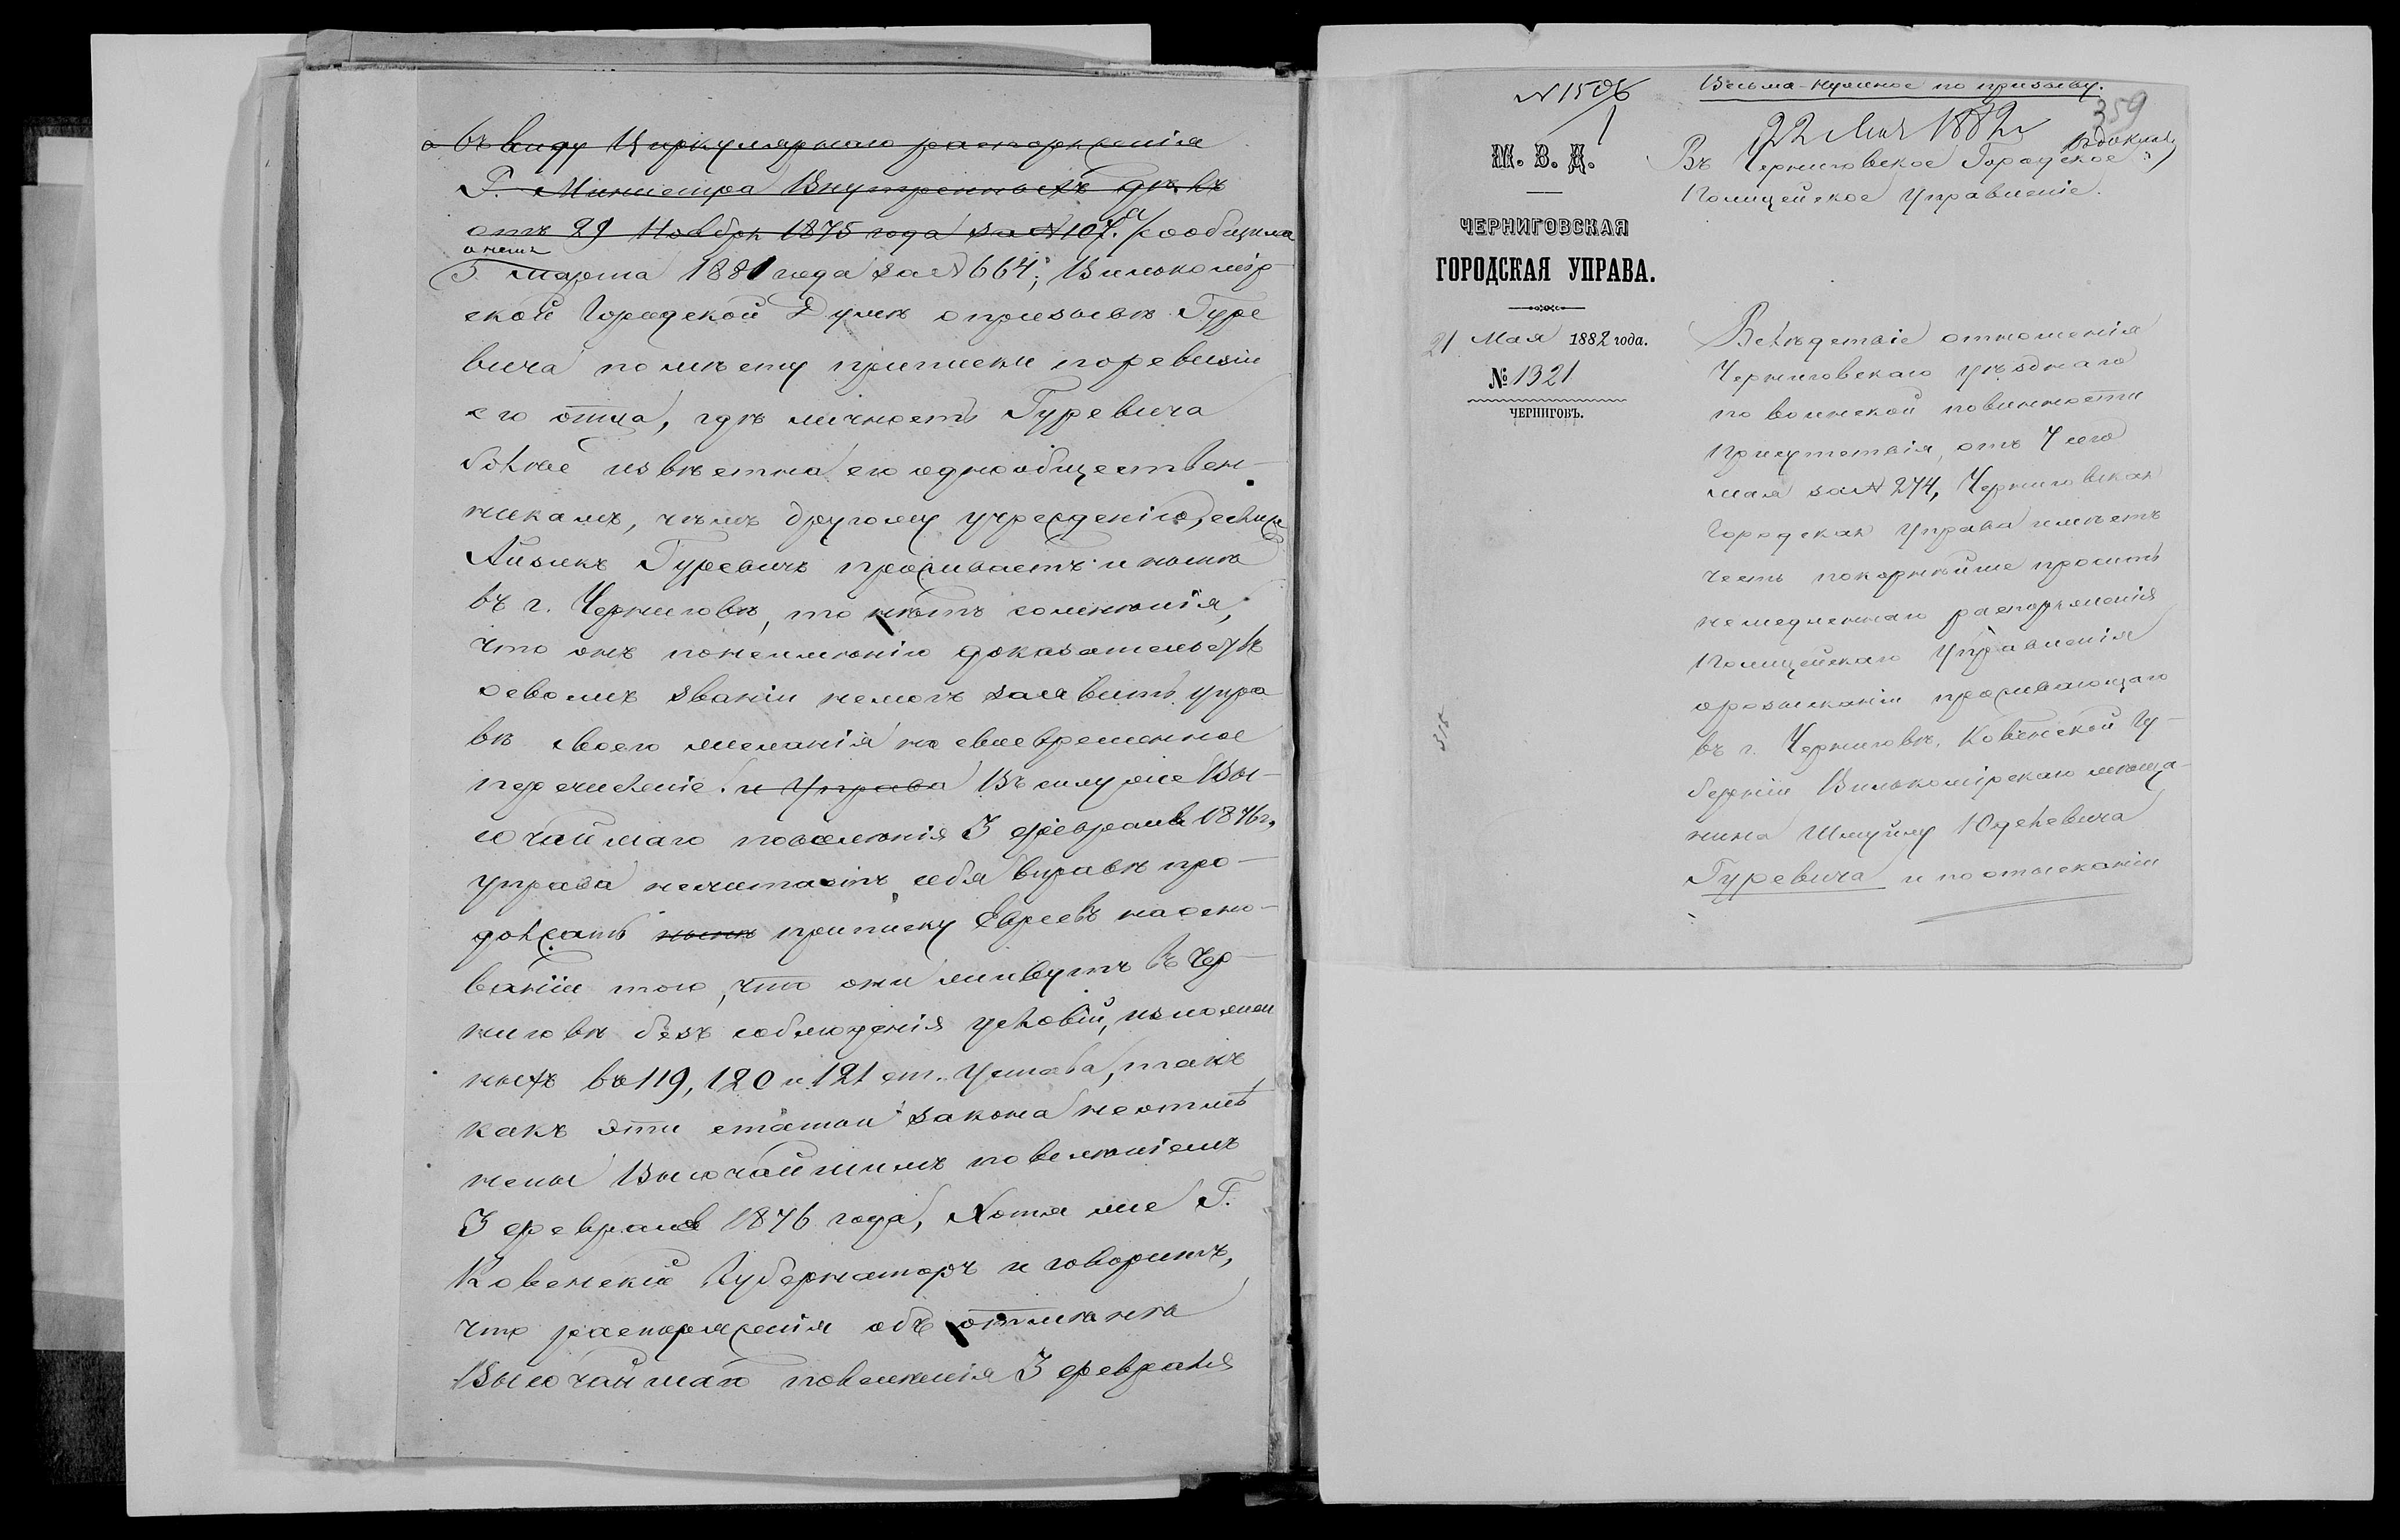 а въ виду Циркулярнаго распоряженія
Г. Министра Внутреннихъ дѣлъ
отъ 29 Ноября 1875 года за № 107. а сообщила
о немъ
5. марта 1881 года за № 664; Вилькомір-
ской Городской Думѣ о призывѣ Гуре
вича по мѣсту приписки по ревизіи
его отца, гдѣ личность Гуревича
болѣе извѣстна его однообществен-
никамъ, чѣмъ другому учрежденію, если же
Айзикъ Гуревичъ проживаетъ и нынѣ
въ г. Черниговѣ, то нѣтъ сомнѣнія,
что онъ по неимѣнію доказательствъ
о своемъ званіи не могъ заявить упра
вѣ своего желанія на своевременное
перечисленіе. и Управа Въ силу же Вы-
сочайшаго повелѣнія 3 февраля 1876 г.,
управа не считаетъ себя вправѣ про-
должать нынѣ приписку Евреевъ на осно-
ваніи того, что они живутъ въ Чер-
ниговѣ безъ соблюденія условій, изложен
ныхъ въ 119, 120 и 121 ст. Устава, такъ
какъ эти статьи закона не отмѣ
нены Высочайшимъ повелѣніемъ
3 февраля 1876 года, Хотя же Г.
Ковенскій Губернаторъ и говоритъ,
что распоряженія объ отмѣнѣ
Высочайшаго повелѣнія 3 февраля
№ 1506
Весьма-нужное по призыву.
359
22 Мая 1882 г
Къ докладу
М. В. Д.
Въ Черниговское Городское
Полицейское Управленіе.
ЧЕРНИГОВСКАЯ
ГОРОДСКАЯ УПРАВА.
21 Мая 1882 года.
№ 1321
ЧЕРНИГОВЪ.
Вслѣдствіе отношенія
Черниговскаго уѣзднаго
по воинской повинности
Присутствія, отъ 7 сего
мая за № 274, Черниговская
Городская Управа имѣетъ
честь покорнѣйше просить
немедленнаго распоряженія
Полицейскаго Управленія
о розысканіи проживающаго
въ г. Черниговѣ, Ковенской Гу-
берніи Вилькомірскаго мѣща-
нина Шмуйлу Юделевича
Гуревича и по отысканіи